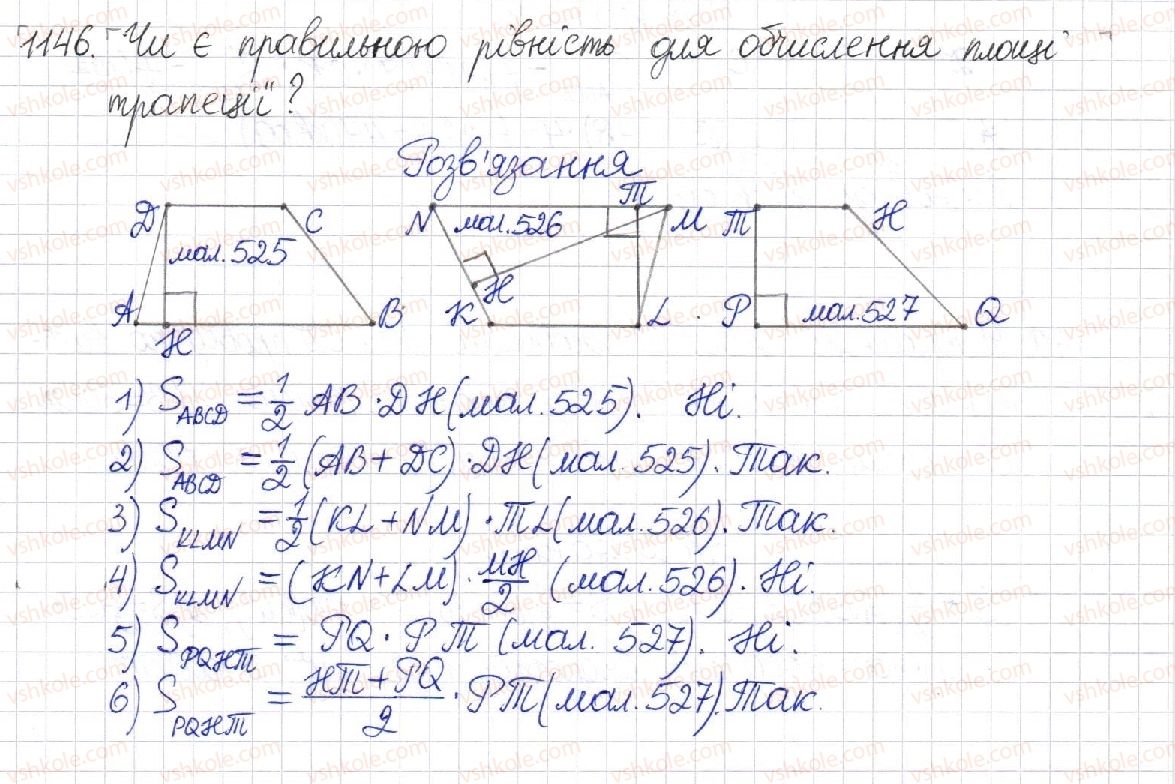 1146. Чи є правильною рівність для обчислення площі
трапеції?
Розв'язання
D C N T M T H
мал.525 мал.526
H
A B K L P мал.527 Q
H
1) S_ABCD = 1/2 AB · DH (мал. 525). Ні.
2) S_ABCD = 1/2 (AB + DC) · DH (мал. 525). Так.
3) S_KLMN = 1/2 (KL + NM) · TL (мал. 526). Так.
4) S_KLMN = (KN + LM) · MH/2 (мал. 526). Ні.
5) S_PQHT = PQ · PT (мал. 527). Ні.
6) S_PQHT = (HT + PQ)/2 · PT (мал. 527). Так.